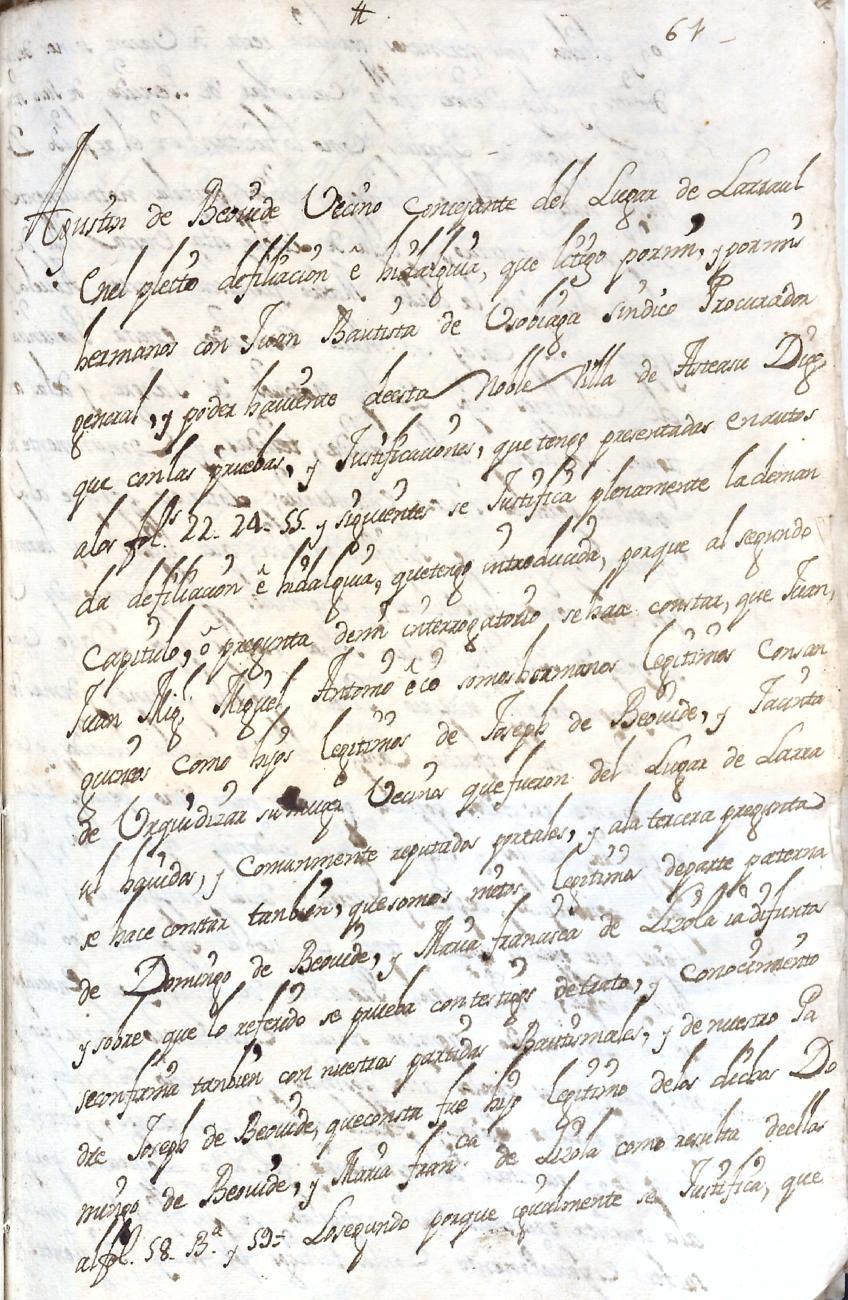 #
61
Agustin de Beovide Vecino concejante del Lugar de Larraul
Enel pleito defiliacion è hidalguia, que litigo pormi, y pormis
hermanos con Juan Bautista de Usobiaga sindico Procurador
general, y poder haviente deesta Noble Villa de Asteasu Digo
que conlas pruebas, y Justificaciones, que tengo presentadas enautos
alos fol.s 22. 24. 55. y siguientes se Justifica plenamente lademan
da defiliacion ê hidalguia, quetengo introducida, porque al segundo
Capitulo, ô pregunta demi interrogatorio se hace constar, que Juan,
Juan Mig.l Miguel Antonio è io somos hermanos legitimos consan
guineos como hijos legitimos de Joseph de Beovide, y Jacinta
de Urquidizar su muger Vecinos que fueron del Lugar de Larra
ul havidos, y comunmente reputados portales, y ala tercera pregunta
se hace constar tambien, que somos nietos legitimos departe paterna
de Domingo de Beovide, y Maria francisca de Lizola ia difuntos
y sobre que lo referido se prueba contestigos detrato, y conocimiento
seconfirma tambien con nuestras partidas Bautismales, y de nuestro Pa
dre Joseph de Beovide, queconsta fue hijo legitimo delos dichos Do
mingo de Beovide, y Maria fran.ca de Lizola como resulta deellas
al fol. 58. B.ta y 59= Losegundo porque igualmente se Justifica, que